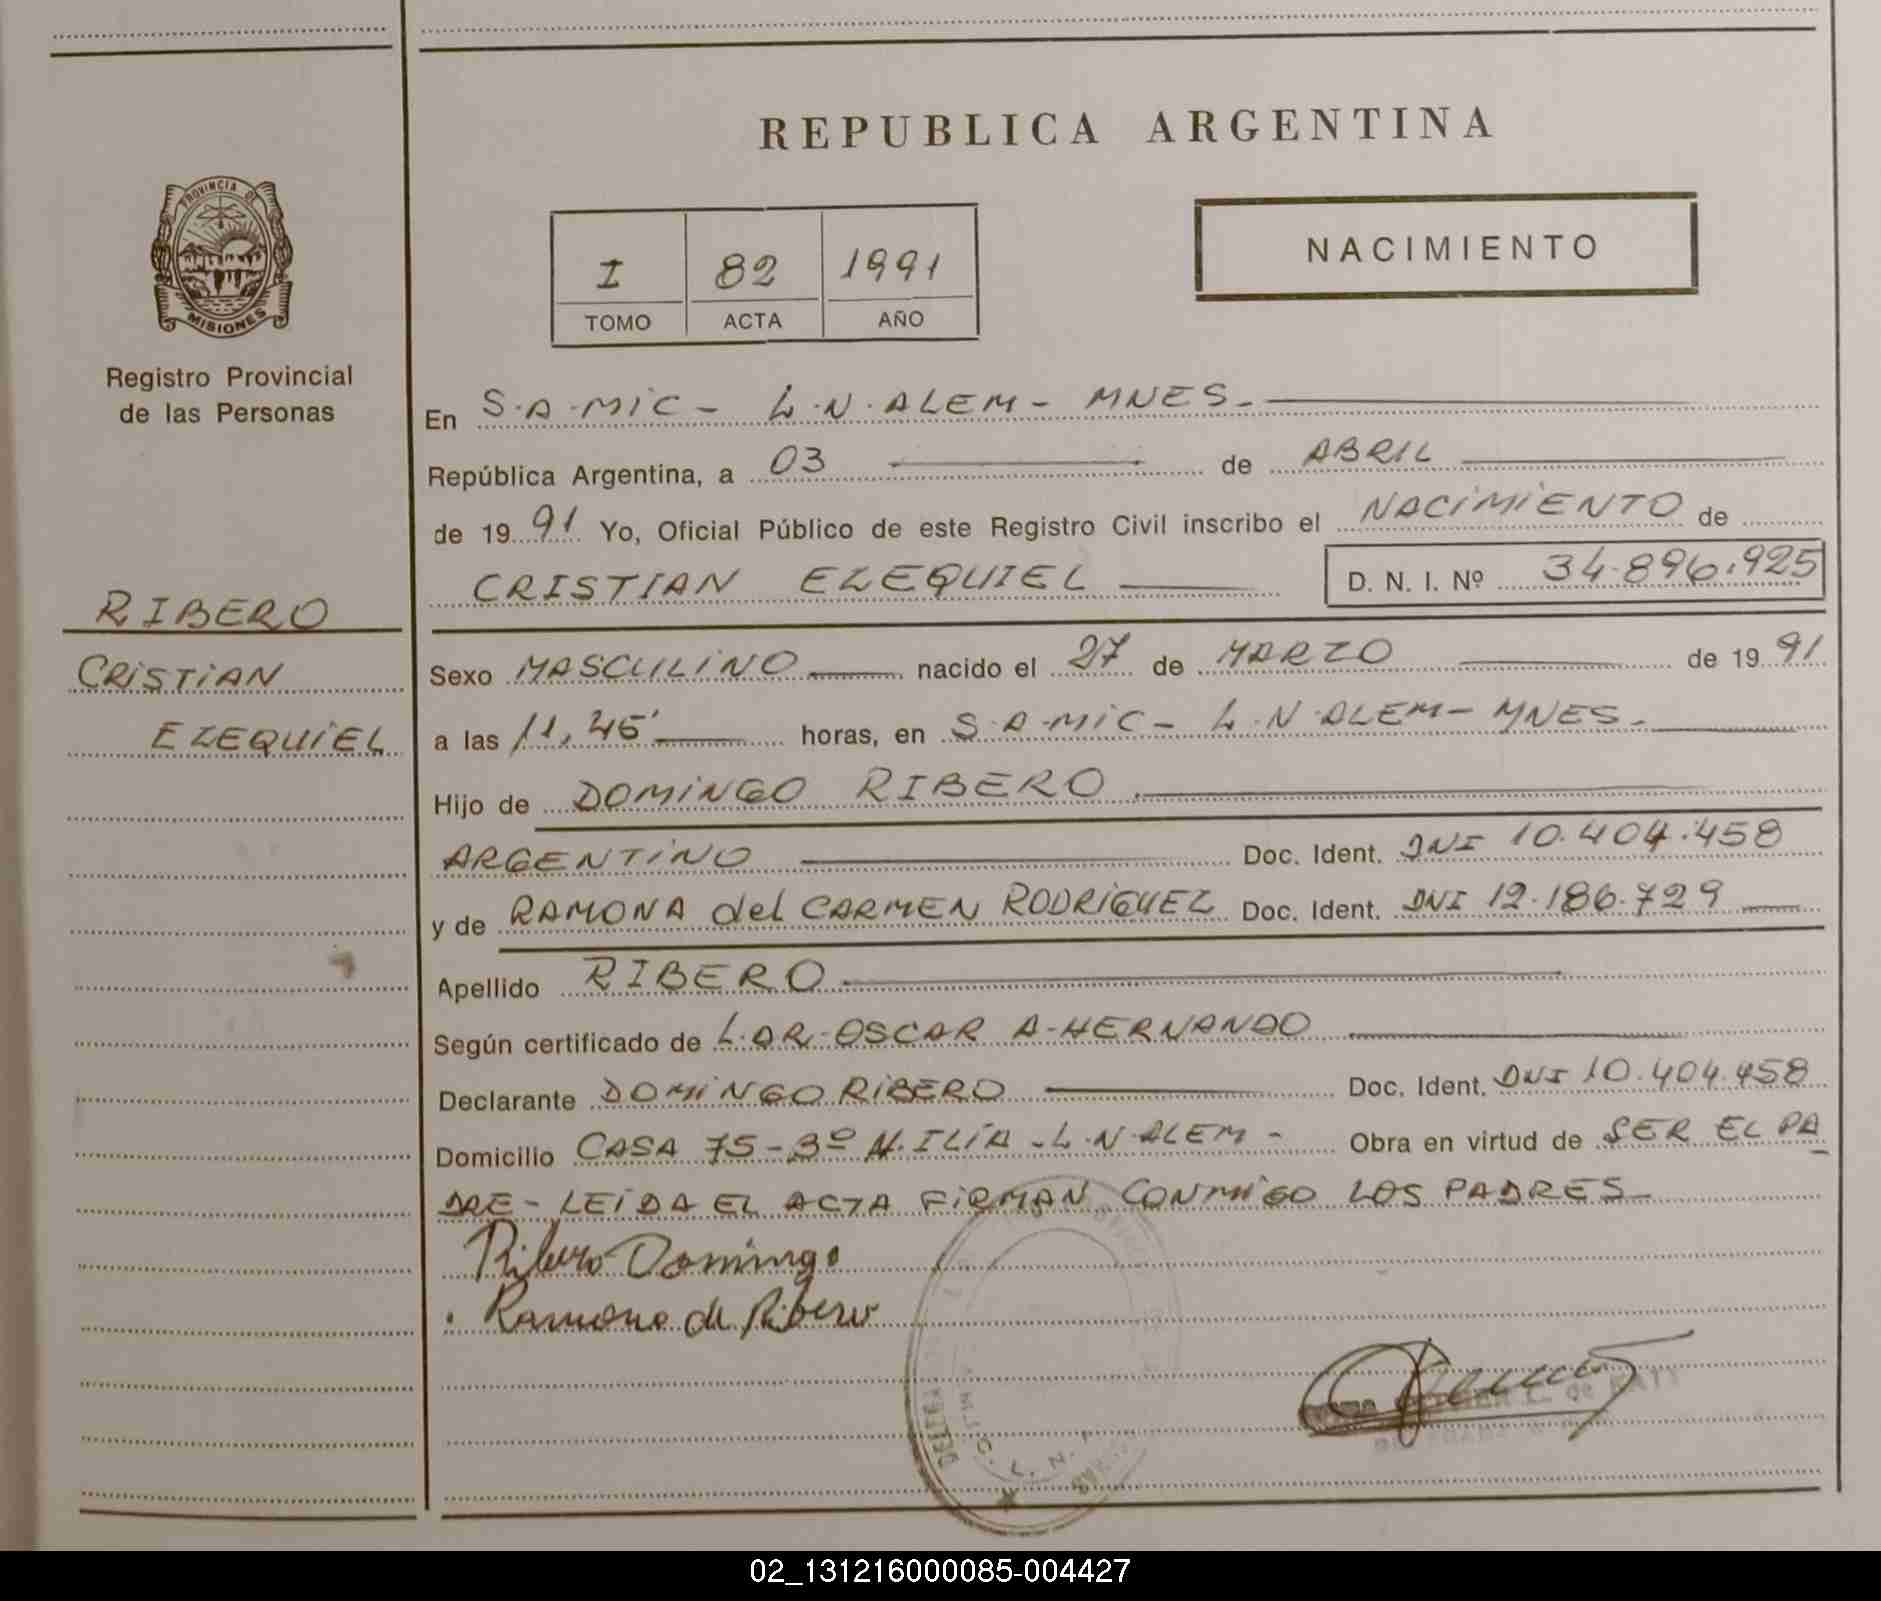 REPUBLICA ARGENTINA
PROVINCIA DE
MISIONES
Registro Provincial
de las Personas
I 82 1991
TOMO ACTA AÑO
NACIMIENTO
En S.A.MIC - L.N.ALEM - MNES.
República Argentina, a 03 de ABRIL
de 1991 Yo, Oficial Público de este Registro Civil inscribo el NACIMIENTO de
CRISTIAN EZEQUIEL D. N. I. Nº 34.896.925
RIBERO
CRISTIAN
EZEQUIEL
Sexo MASCULINO nacido el 27 de MARZO de 1991
a las 11,45' horas, en S.A.MIC - L.N.ALEM - MNES.
Hijo de DOMINGO RIBERO
ARGENTINO Doc. Ident. DNI 10.404.458
y de RAMONA del CARMEN RODRIGUEZ Doc. Ident. DNI 12.186.729
Apellido RIBERO
Según certificado de L. DR. OSCAR A. HERNANDO
Declarante DOMINGO RIBERO Doc. Ident. DNI 10.404.458
Domicilio CASA 75 - 3º H. ILIA - L.N.ALEM - Obra en virtud de SER EL PA
DRE - LEIDA EL ACTA FIRMAN CONMIGO LOS PADRES
Ribero Domingo
Ramona de Ribero
02_131216000085-004427